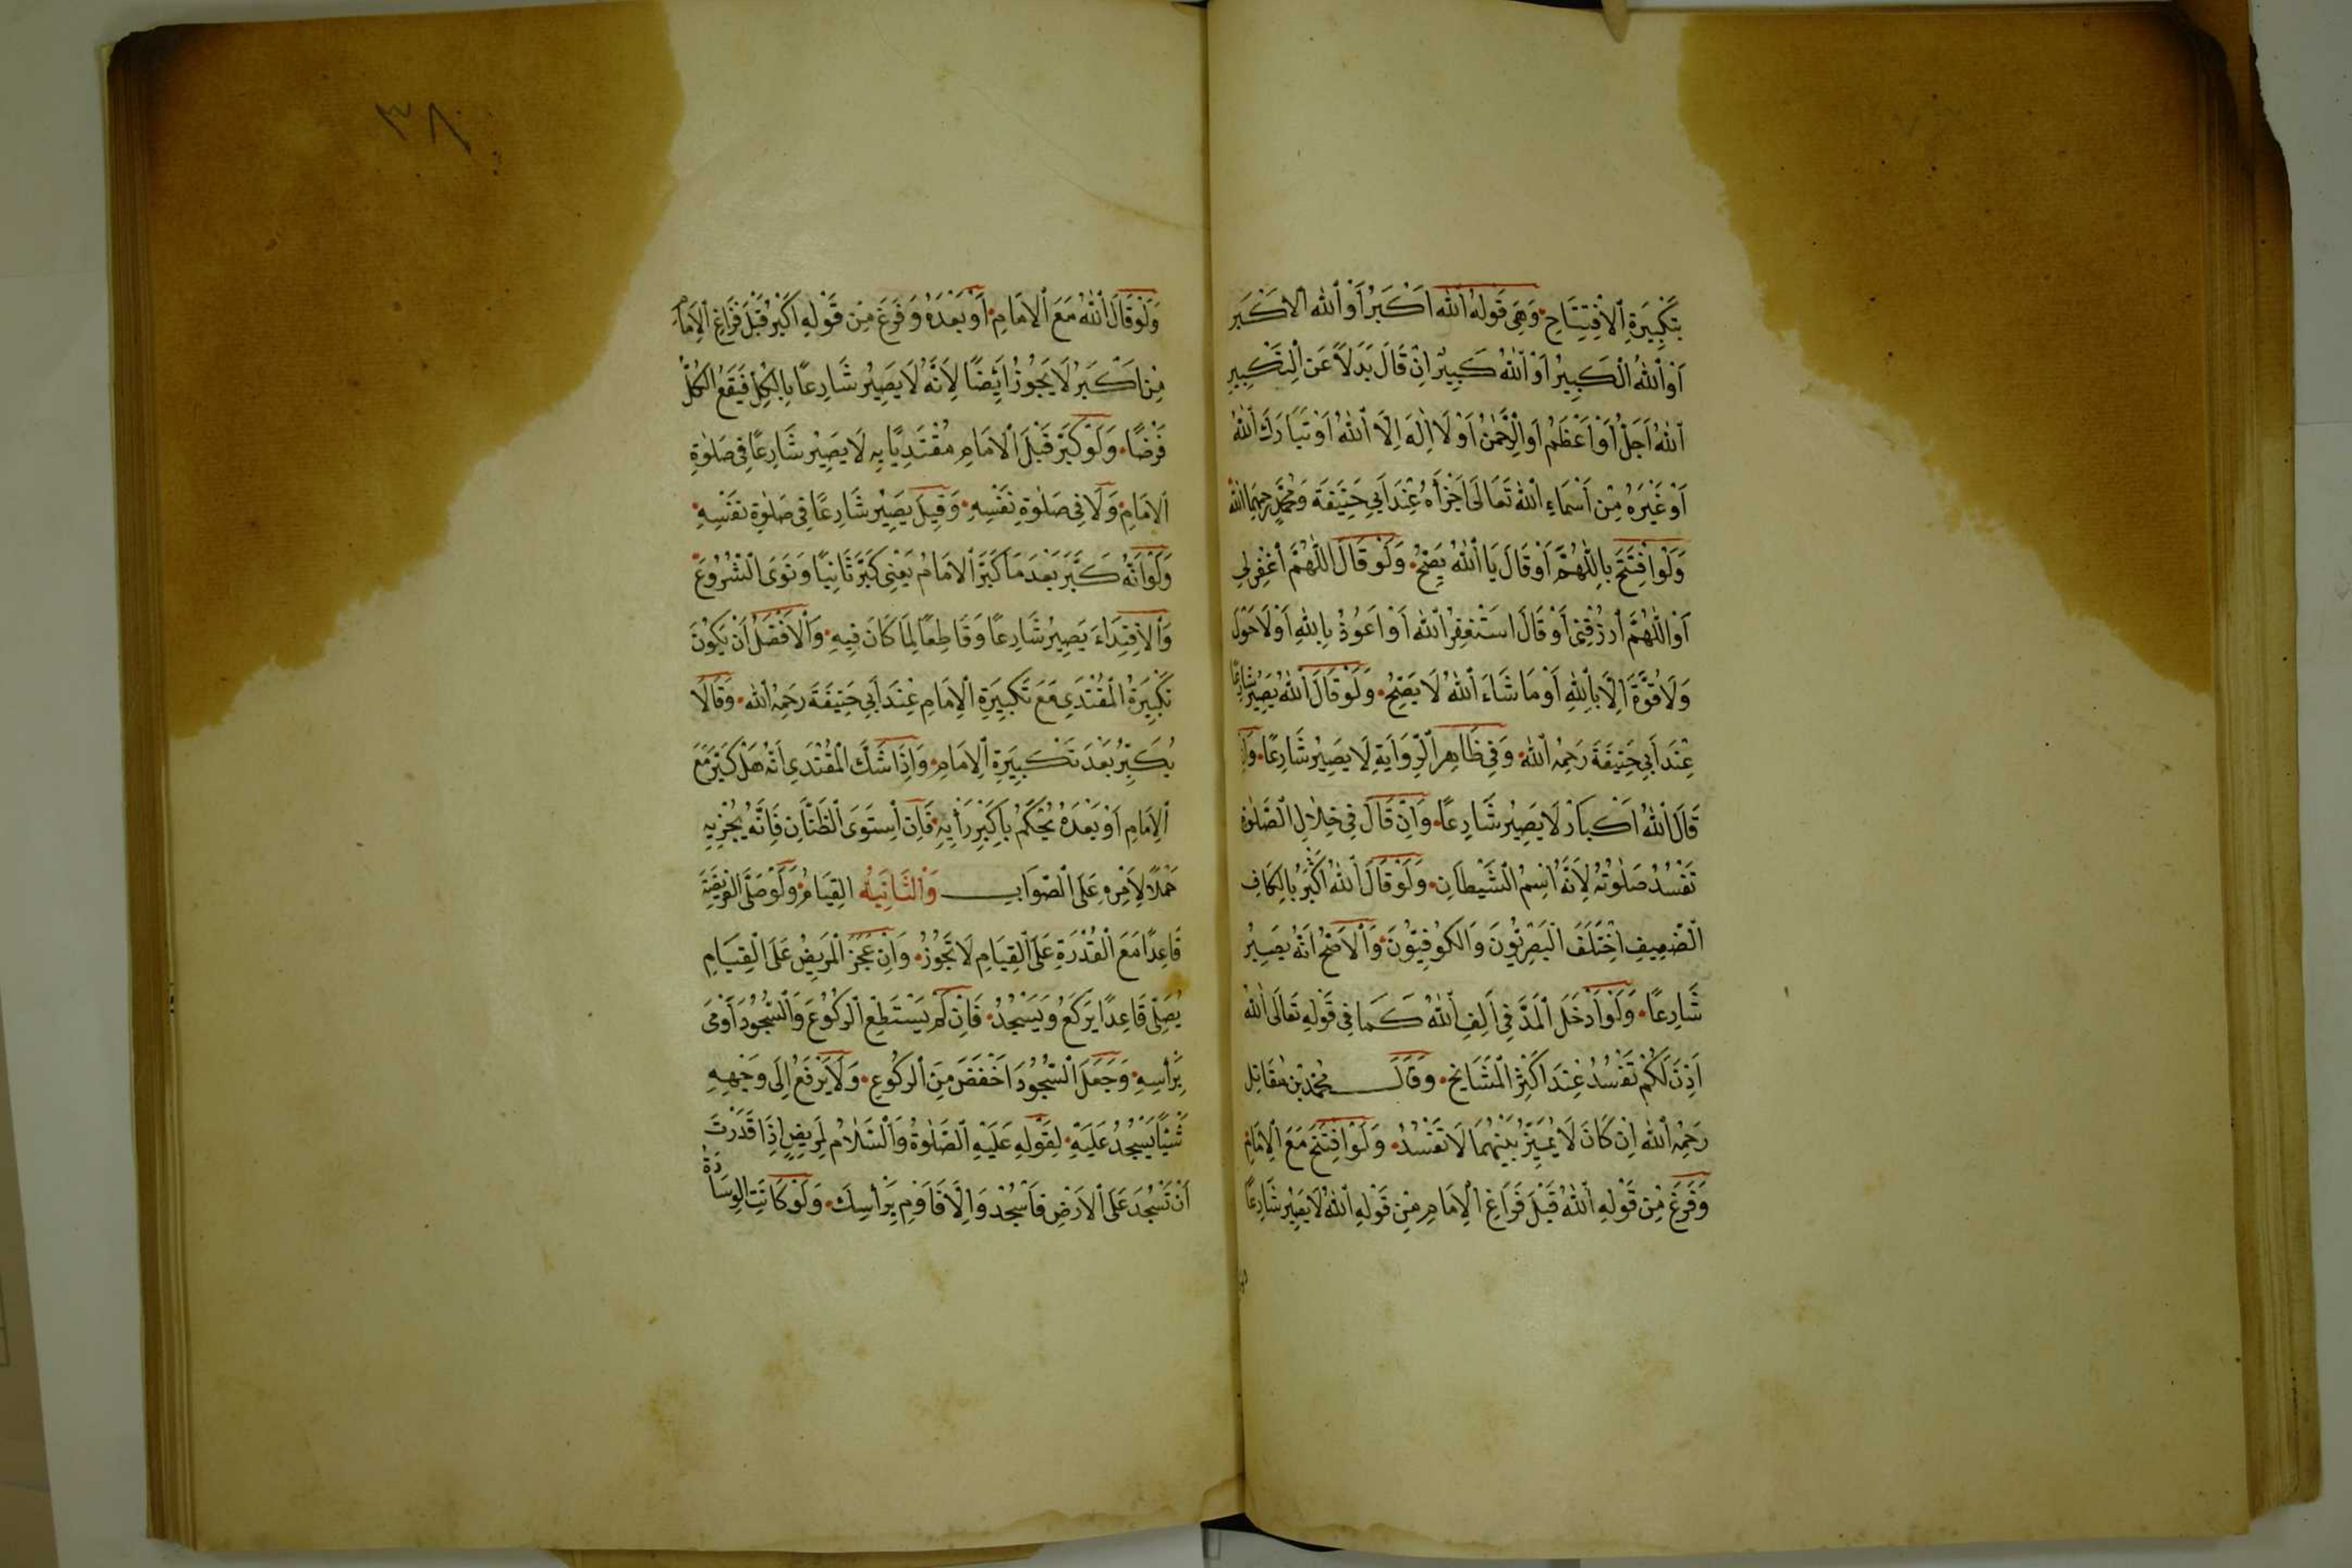 بِتَكْبِيرَةِ الْاِفْتِتَاحِ وَهِيَ قَوْلُهُ اَللّٰهُ اَكْبَرُ اَوْ اَللّٰهُ الْاَكْبَرُ
اَوْ اَللّٰهُ الْكَبِيرُ اَوْ اَللّٰهُ كَبِيرٌ اِنْ قَالَ بَدَلاً عَنِ التَّكْبِيرِ
اَللّٰهُ اَجَلُّ اَوْ اَعْظَمُ اَوِ الرَّحْمٰنُ اَوْ لَا اِلٰهَ اِلَّا اللّٰهُ اَوْ تَبَارَكَ اللّٰهُ
اَوْ غَيْرَهُ مِنْ اَسْمَاءِ اللّٰهِ تَعَالٰى اَجْزَأَهُ عِنْدَ اَبِي حَنِيفَةَ وَمُحَمَّدٍ رَحِمَهُمَا اللّٰهُ
وَلَوِ افْتَتَحَ بِاللّٰهُمَّ اَوْ قَالَ يَا اَللّٰهُ يَصِحُّ وَلَوْ قَالَ اللّٰهُمَّ اغْفِرْ لِي
اَوْ اللّٰهُمَّ ارْزُقْنِي اَوْ قَالَ اَسْتَغْفِرُ اللّٰهَ اَوْ اَعُوذُ بِاللّٰهِ اَوْ لَا حَوْلَ
وَلَا قُوَّةَ اِلَّا بِاللّٰهِ اَوْ مَا شَاءَ اللّٰهُ لَا يَصِحُّ وَلَوْ قَالَ اَللّٰهُ يَصِيرُ شَارِعًا
عِنْدَ اَبِي حَنِيفَةَ رَحِمَهُ اللّٰهُ وَفِي ظَاهِرِ الرِّوَايَةِ لَا يَصِيرُ شَارِعًا وَاِنْ
قَالَ اَللّٰهُ اَكْبَارْ لَا يَصِيرُ شَارِعًا وَاِنْ قَالَ فِي خِلَالِ الصَّلٰوةِ
تَفْسُدُ صَلٰوتُهُ لِاَنَّهُ اِسْمُ الشَّيْطَانِ وَلَوْ قَالَ اَللّٰهُ اَكْبَرُ بِالْكَافِ
الضَّعِيفِ اِخْتَلَفَ الْبَصْرِيُّونَ وَالْكُوفِيُّونَ وَالْاَصَحُّ اَنَّهُ يَصِيرُ
شَارِعًا وَلَوْ اَدْخَلَ الْمَدَّ فِي اَلِفِ اللّٰهِ كَمَا فِي قَوْلِهِ تَعَالٰى اٰللّٰهُ
اَذِنَ لَكُمْ تَفْسُدُ عِنْدَ اَكْثَرِ الْمَشَايِخِ وَقَالَ مُحَمَّدُ بْنُ مُقَاتِلِ
رَحِمَهُ اللّٰهُ اِنْ كَانَ لَا يُمَيِّزُ بَيْنَهُمَا لَا تَفْسُدُ وَلَوِ افْتَتَحَ مَعَ الْاِمَامِ
وَفَرَغَ مِنْ قَوْلِهِ اَللّٰهُ قَبْلَ فَرَاغِ الْاِمَامِ مِنْ قَوْلِهِ اَللّٰهُ لَا يَصِيرُ شَارِعًا
٣٨
وَلَوْ قَالَ اَللّٰهُ مَعَ الْاِمَامِ اَوْ بَعْدَهُ وَفَرَغَ مِنْ قَوْلِهِ اَكْبَرُ قَبْلَ فَرَاغِ الْاِمَامِ
مِنْ اَكْبَرُ لَا يَجُوزُ اَيْضًا لِاَنَّهُ لَا يَصِيرُ شَارِعًا بِالْكُلِّ فَيَقَعُ الْكُلُّ
فَرْضًا وَلَوْ كَبَّرَ قَبْلَ الْاِمَامِ مُقْتَدِيًا بِهِ لَا يَصِيرُ شَارِعًا فِي صَلٰوةِ
الْاِمَامِ وَلَا فِي صَلٰوةِ نَفْسِهِ وَقِيلَ يَصِيرُ شَارِعًا فِي صَلٰوةِ نَفْسِهِ
وَلَوْ اَنَّهُ كَبَّرَ بَعْدَ مَا كَبَّرَ الْاِمَامُ يَعْنِي كَبَّرَ ثَانِيًا وَنَوَى الشُّرُوعَ
وَالْاِقْتِدَاءَ يَصِيرُ شَارِعًا وَقَاطِعًا لِمَا كَانَ فِيهِ وَالْاَفْضَلُ اَنْ يَكُونَ
تَكْبِيرَةُ الْمُقْتَدِي مَعَ تَكْبِيرَةِ الْاِمَامِ عِنْدَ اَبِي حَنِيفَةَ رَحِمَهُ اللّٰهُ وَقَالَا
يُكَبِّرُ بَعْدَ تَكْبِيرَةِ الْاِمَامِ وَاِذَا شَكَّ الْمُقْتَدِي اَنَّهُ هَلْ كَبَّرَ مَعَ
الْاِمَامِ اَوْ بَعْدَهُ يَحْكُمُ بِاَكْبَرِ رَأْيِهِ فَاِنِ اسْتَوَى الظَّنَّانِ فَاِنَّهُ يُجْزِيهِ
حَمْلًا لِاَمْرِهِ عَلَى الصَّوَابِ وَالثَّانِيَةُ الْقِيَامُ وَلَوْ صَلَّى الْفَرِيضَةَ
قَاعِدًا مَعَ الْقُدْرَةِ عَلَى الْقِيَامِ لَا تَجُوزُ وَاِنْ عَجَزَ الْمَرِيضُ عَلَى الْقِيَامِ
يُصَلِّي قَاعِدًا يَرْكَعُ وَيَسْجُدُ فَاِنْ لَمْ يَسْتَطِعِ الرُّكُوعَ وَالسُّجُودَ اَوْمٰى
بِرَأْسِهِ وَجَعَلَ السُّجُودَ اَخْفَضَ مِنَ الرُّكُوعِ وَلَا يَرْفَعُ اِلٰى وَجْهِهِ
شَيْئًا يَسْجُدُ عَلَيْهِ لِقَوْلِهِ عَلَيْهِ الصَّلٰوةُ وَالسَّلَامُ لِمَرِيضٍ اِذَا قَدَرْتَ
اَنْ تَسْجُدَ عَلَى الْاَرْضِ فَاسْجُدْ وَاِلَّا فَاَوْمِ بِرَأْسِكَ وَلَوْ كَانَتِ الْوِسَادَةُ